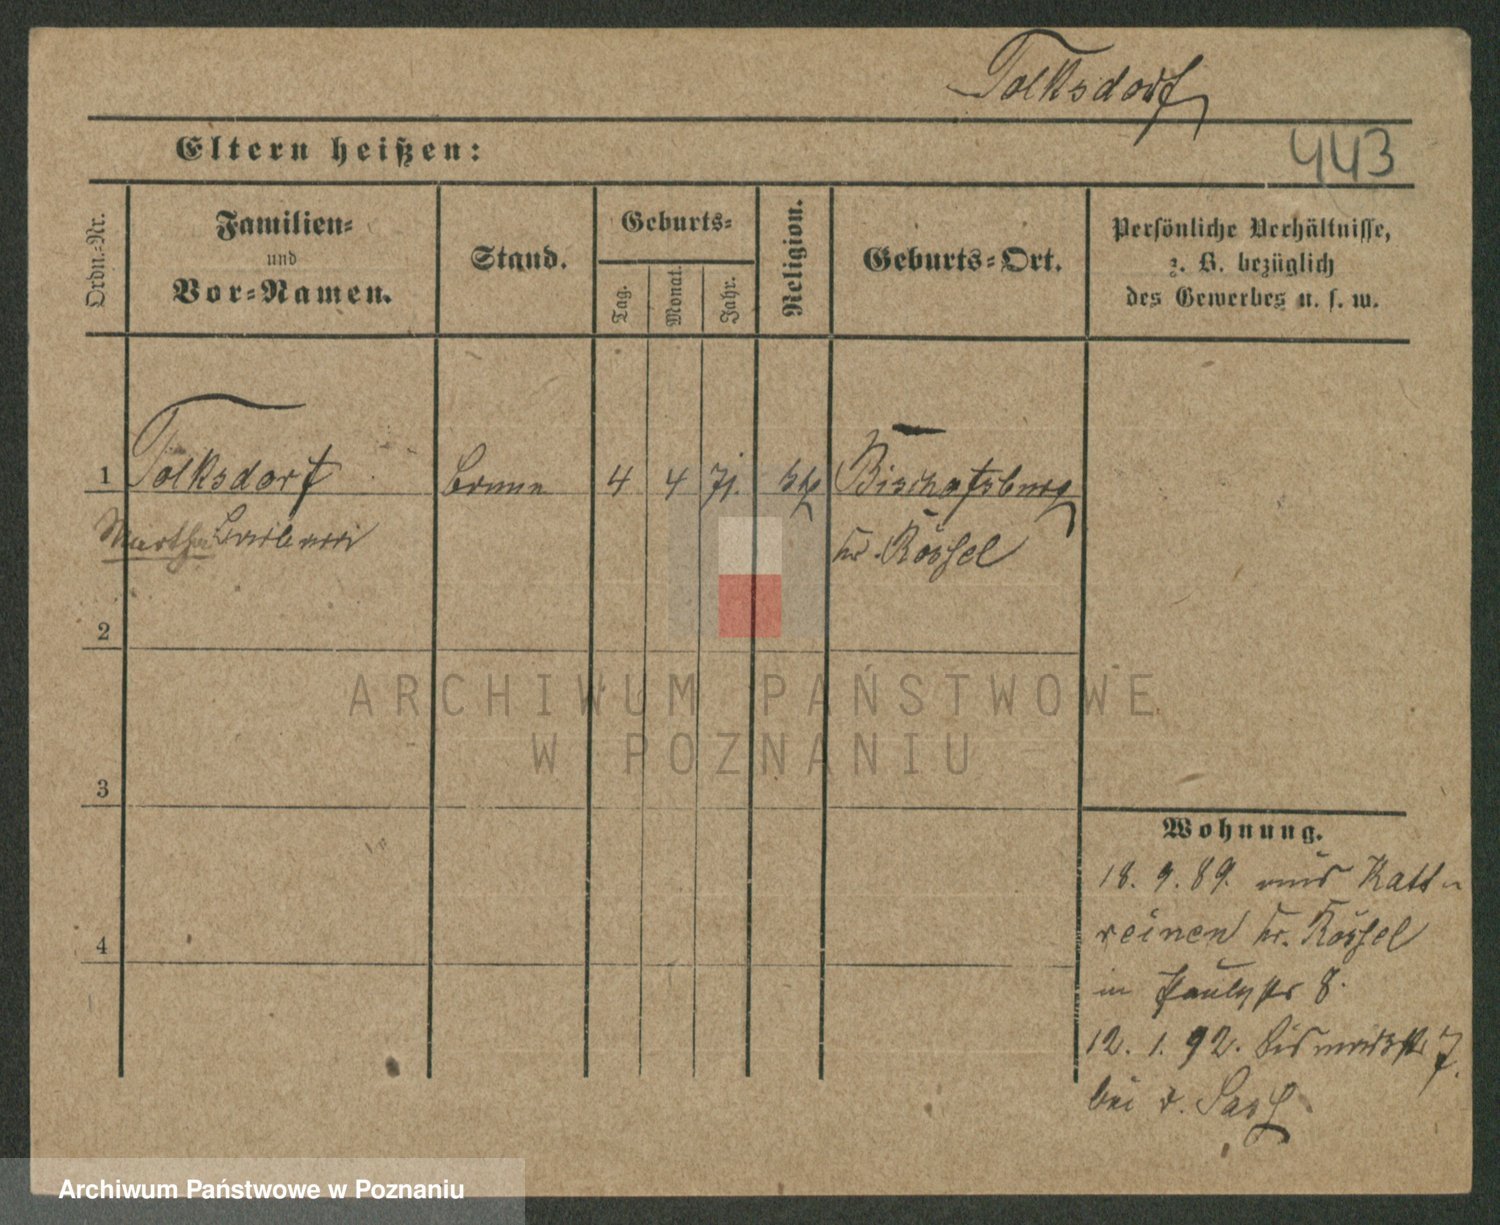 Tolksdorf
443
Eltern heißen:
Ordn.-Nr.
Familien-
und
Vor-Namen.
Stand.
Geburts-
Tag.
Monat.
Jahr.
Religion.
Geburts-Ort.
Persönliche Verhältnisse,
z. B. bezüglich
des Gewerbes u. s. w.
1 Tolksdorf Bonne 4 4 71. kth Bischofsburg
Martha Kr. Rössel
2
3
4
Wohnung.
18. 9. 89. aus Katt-
reinen Kr. Rössel
in Paulystr 8.
12. 1. 92. Bismarkstr 7.
bei v.
ARCHIWUM PAŃSTWOWE
W POZNANIU
Archiwum Państwowe w Poznaniu